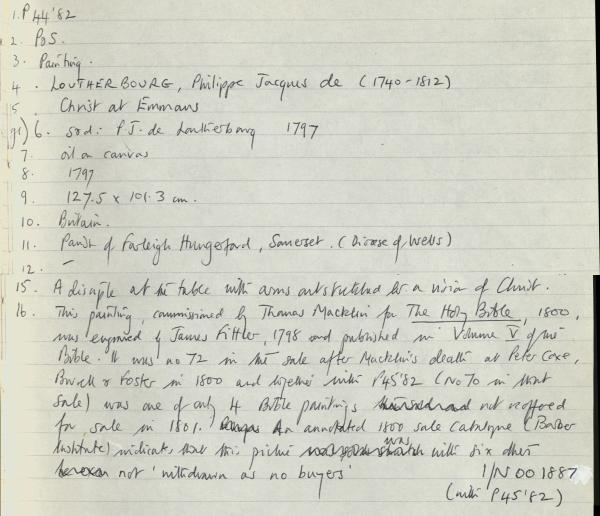 1. P 44'82
2. PoS.
3. Painting.
4. LOUTHERBOURG, Philippe Jacques de (1740-1812)
5. Christ at Emmaus
6. sgd: P.J. de Loutherbourg 1797
7. oil on canvas
8. 1797
9. 127.5 x 101.3 cm.
10. Britain.
11. Parish of Farleigh Hungerford, Somerset. (Diocese of Wells)
12. –
15. A disciple at the table with arms outstretched by a vision of Christ.
16. This painting, commissioned by Thomas Macklin for The Holy Bible, 1800,
was engraved by James Fittler, 1798 and published in Volume V of the
Bible. It was no 72 in the sale after Macklin's death at Peter Coxe,
Burrell & Foster in 1800 and together with P45'82 (No 70 in that
sale) was one of only 4 Bible paintings not reoffered
for sale in 1801. An annotated 1800 sale catalogue (Barber
Institute) indicates that this picture was with six others
not 'withdrawn as no buyers'
1/N 001887
(with P45'82)